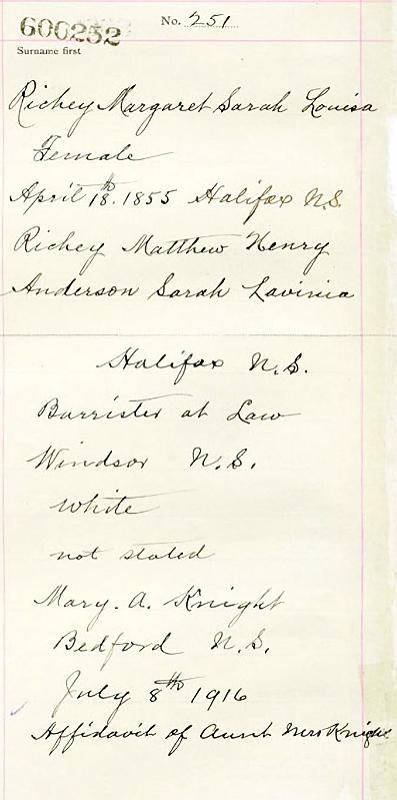 606252
No. 251
Surname first
Richey Margaret Sarah Louisa
Female
April 18th. 1855 Halifax N.S.
Richey Matthew Henry
Anderson Sarah Lavinia
Halifax N.S.
Barrister at Law
Windsor N.S.
White
not stated
Mary. A. Knight
Bedford N.S.
July 8th 1916
Affidavit of Aunt Mrs Knight